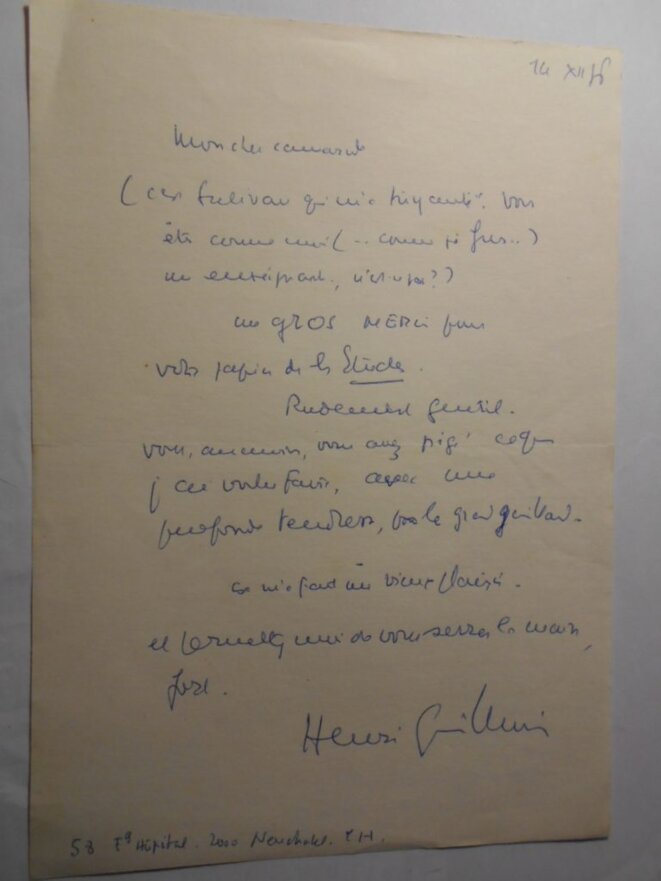 14 XII 76
Mon cher camarade
(car Sulivan qui m'a            . Vous
êtes comme moi (.. comme je fus..)
un enseignant, n'est-ce pas?)
un GROS MERCI pour
votre papier de les Etudes.
Rudement gentil.
vous, au moins, vous avez pigé ce que
j'ai voulu faire, avec une
profonde tendresse, pour le grand gaillard.
ça m'a fait un vieux plaisir.
et permettez moi de vous serrer la main,
fort.
Henri Guillemin
58 Fg Hôpital. 2000 Neuchâtel. CH.